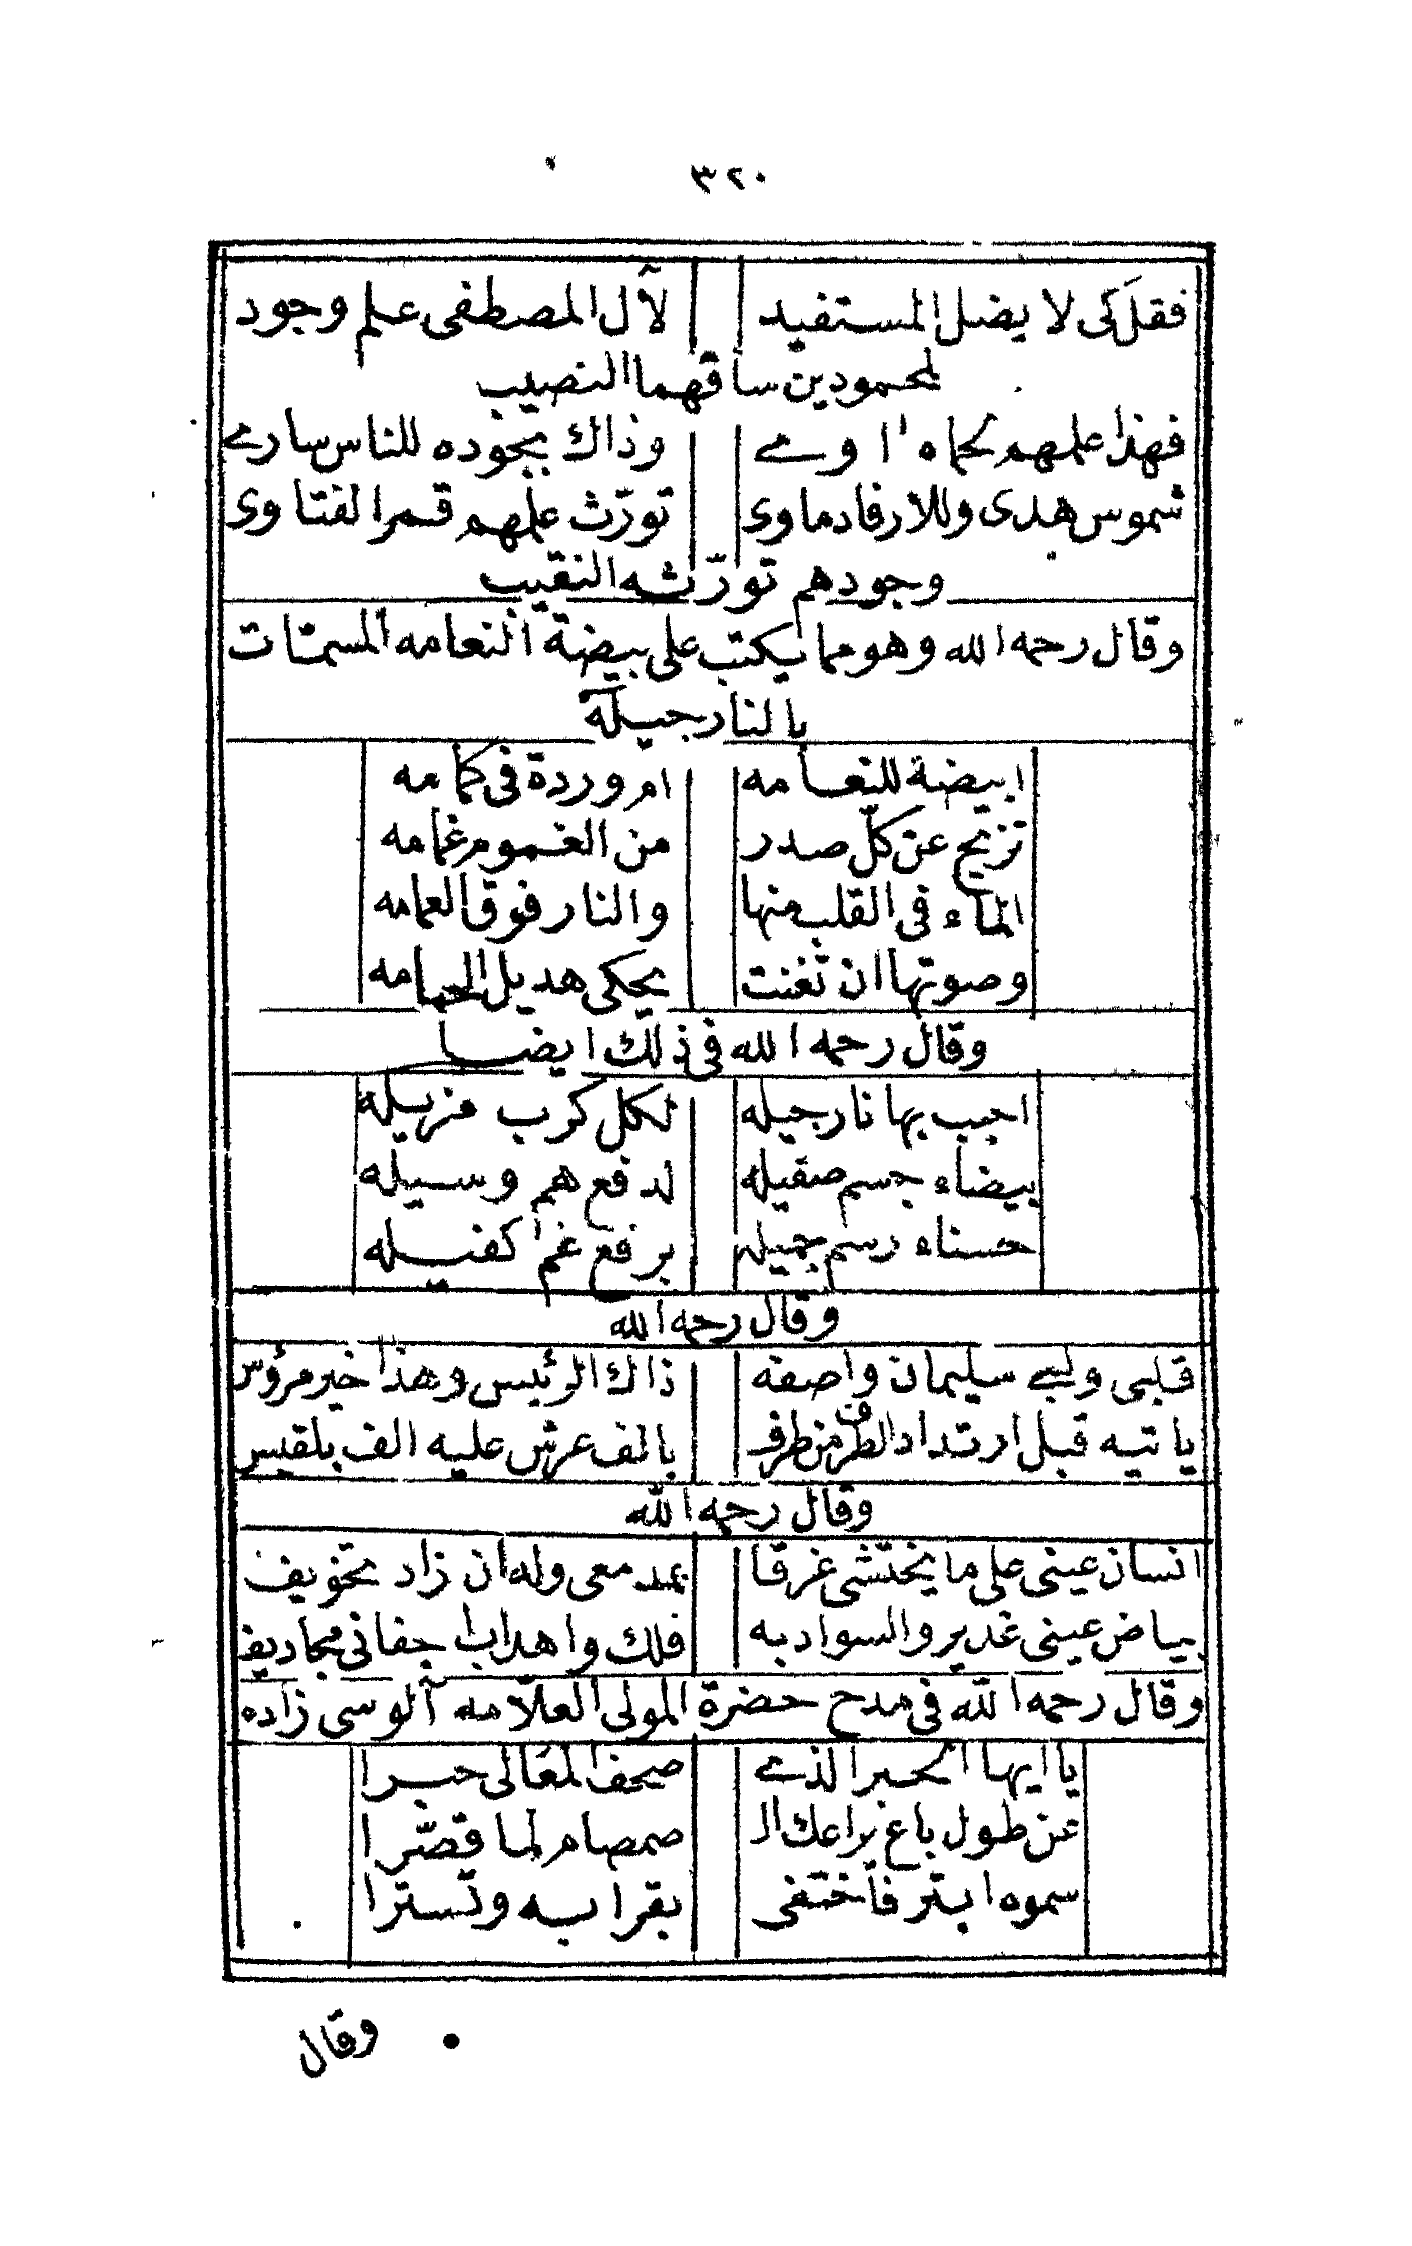 ٣٢٠
فقل كى لا يضل المستفيد لآل المصطفى علم وجود
لمحمودين ساقهما النصيب
فهذا علمهم لحماه اوى وذاك بجوده للناس سارى
شموس هدى وللارفاد ماوى تورّث علمهم قمر الفتاوى
وجودهم تورّثه النقيب
وقال رحمه الله وهو مما يكتب على بيضة النعامه المسمّات
بالنارجيلة
ابيضة للنعامه ام وردة فى كمامه
تزيح عن كلّ صدر من الغموم غمامه
الماء فى القلب منها والنار فوق العمامه
وصوتها ان تغنت يحكى هديل الحمامه
وقال رحمه الله فى ذلك ايضا
احبب بها نارجيله لكل كرب مزيله
بيضاء جسم صقيله لدفع هم وسيله
حسناء رسم جميله برفع غم كفيله
وقال رحمه الله
قلبى ولبى سليمان واصفه ذاك الرئيس وهذا خير مرؤس
ياتيه قبل ارتداد الطرف من طرف بالف عرش عليه الف بلقيس
وقال رحمه الله
انسان عينى على ما يختشى غرقا بمد معى وله ان زاد تخويف
بياض عينى غدير والسواد به فلك واهداب جفانى مجاديف
وقال رحمه الله فى مدح حضرة المولى العلّامه آلوسى زاده
يا ايها الحبر الذى صحف المعالى حبرا
عن طول باع يراعك الـ صمصام لما قصّرا
سموه ابتر فاختفى بقرابه وتسترا
وقال